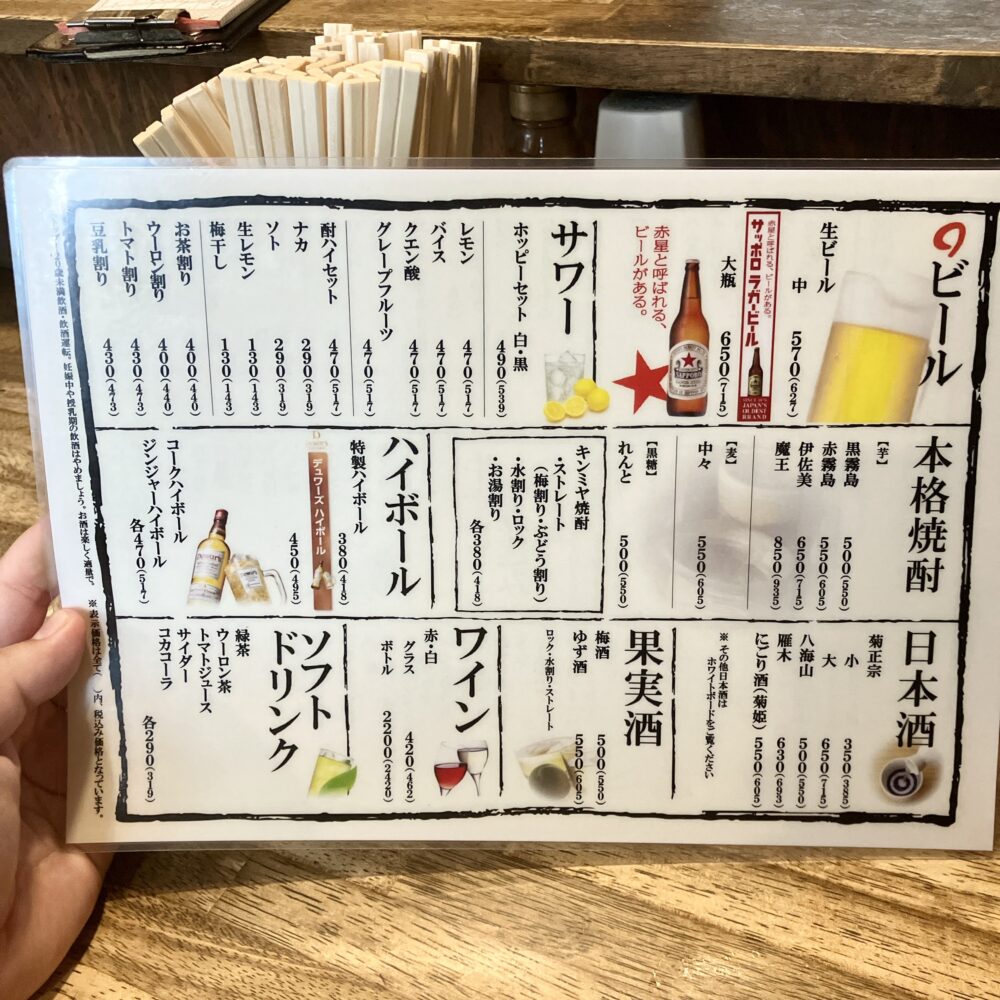 ビール
生ビール 中 570(627)
赤星と呼ばれる、ビールがある。
サッポロ ラガービール
SINCE 1876
JAPAN'S
OLDEST
BRAND
大瓶 650(715)
赤星と呼ばれる、
ビールがある。
SAPPORO
サワー
ホッピーセット 白・黒 490(539)
レモン 470(517)
バイス 470(517)
クエン酸 470(517)
グレープフルーツ 470(517)
酎ハイセット 470(517)
ナカ 290(319)
ソト 290(319)
生レモン 130(143)
梅干し 130(143)
お茶割り 400(440)
ウーロン割り 400(440)
トマト割り 430(473)
豆乳割り 430(473)
本格焼酎
【芋】
黒霧島 500(550)
赤霧島 550(605)
伊佐美 650(715)
魔王 850(935)
【麦】
中々 550(605)
【黒糖】
れんと 500(550)
キンミヤ焼酎
・ストレート
(梅割り・ぶどう割り)
・水割り・ロック
・お湯割り
各380(418)
ハイボール
特製ハイボール 380(418)
デュワーズ ハイボール 450(495)
コークハイボール
ジンジャーハイボール
各470(517)
日本酒
菊正宗
小 350(385)
大 650(715)
八海山 500(550)
雁木 630(693)
にごり酒(菊姫) 550(605)
※その他日本酒は
ホワイトボードをご覧ください
果実酒
梅酒 500(550)
ゆず酒 550(605)
ロック・水割り・ストレート
ワイン
赤・白
グラス 420(462)
ボトル 2200(2420)
ソフト
ドリンク
緑茶
ウーロン茶
トマトジュース
サイダー
コカコーラ
各290(319)
20歳未満飲酒・飲酒運転、妊娠中や授乳期の飲酒はやめましょう。お酒は楽しく適量で。 ※表示価格は全て( )内、税込み価格となっています。